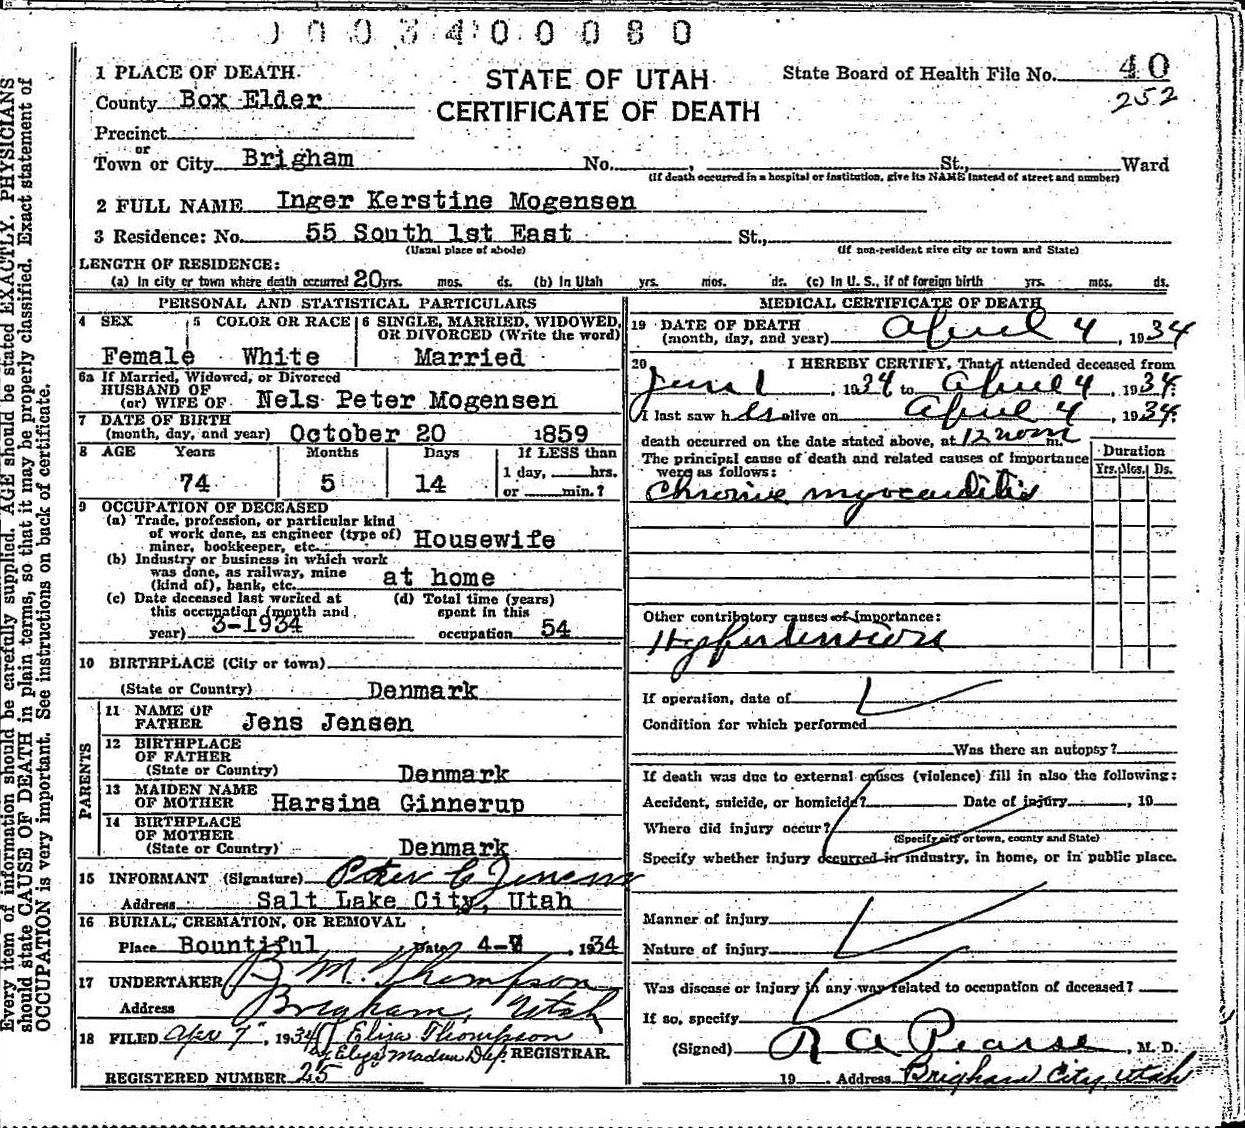 0 0 3 4 0 0 0 8 0
1 PLACE OF DEATH.
County Box Elder
Precinct
or
Town or City Brigham No. , St., Ward
(If death occurred in a hospital or institution, give its NAME instead of street and number)
STATE OF UTAH
CERTIFICATE OF DEATH
State Board of Health File No. 40
252
2 FULL NAME Inger Kerstine Mogensen
3 Residence: No. 55 South 1st East St.,
(Usual place of abode) (If non-resident give city or town and State)
LENGTH OF RESIDENCE:
(a) In city or town where death occurred 20 yrs. mos. ds. (b) In Utah yrs. mos. ds. (c) In U. S., if of foreign birth yrs. mos. ds.
PERSONAL AND STATISTICAL PARTICULARS
4 SEX 5 COLOR OR RACE 6 SINGLE, MARRIED, WIDOWED,
OR DIVORCED (Write the word)
Female White Married
6a If Married, Widowed, or Divorced
HUSBAND OF
(or) WIFE OF Nels Peter Mogensen
7 DATE OF BIRTH
(month, day, and year) October 20 1859
8 AGE Years Months Days If LESS than
1 day, hrs.
74 5 14 or min.?
9 OCCUPATION OF DECEASED
(a) Trade, profession, or particular kind
of work done, as engineer (type of)
miner, bookkeeper, etc. Housewife
(b) Industry or business in which work
was done, as railway, mine
(kind of), bank, etc. at home
(c) Date deceased last worked at (d) Total time (years)
this occupation (month and spent in this
year) 3-1934 occupation 54
10 BIRTHPLACE (City or town)
(State or Country) Denmark
PARENTS
11 NAME OF
FATHER Jens Jensen
12 BIRTHPLACE
OF FATHER
(State or Country) Denmark
13 MAIDEN NAME
OF MOTHER Harsina Ginnerup
14 BIRTHPLACE
OF MOTHER
(State or Country) Denmark
15 INFORMANT (Signature) Peter C Jensen
Address Salt Lake City, Utah
16 BURIAL, CREMATION, OR REMOVAL
Place Bountiful Date 4-7, 1934
17 UNDERTAKER B M. Thompson
Address Brigham, Utah
18 FILED Apr 7", 1934 Eliza Thompson
by Madsen Dep REGISTRAR.
REGISTERED NUMBER 25
MEDICAL CERTIFICATE OF DEATH
19 DATE OF DEATH
(month, day, and year) April 4, 1934
20 I HEREBY CERTIFY, That I attended deceased from
1934 to April 4, 1934.
I last saw her alive on April 4, 1934.
death occurred on the date stated above, at 12 noon m.
The principal cause of death and related causes of importance
were as follows:
Duration
Yrs. Mos. Ds.
Chronic myocarditis
Other contributory causes of importance:
Hypertension
If operation, date of
Condition for which performed
Was there an autopsy?
If death was due to external causes (violence) fill in also the following:
Accident, suicide, or homicide? Date of injury , 19
Where did injury occur?
(Specify city or town, county and State)
Specify whether injury occurred in industry, in home, or in public place.
Manner of injury
Nature of injury
Was disease or injury in any way related to occupation of deceased?
If so, specify
(Signed) R A Pearse, M. D.
19 Address Brigham City, Utah
Every item of information should be carefully supplied. AGE should be stated EXACTLY. PHYSICIANS
should state CAUSE OF DEATH in plain terms, so that it may be properly classified. Exact statement of
OCCUPATION is very important. See instructions on back of certificate.